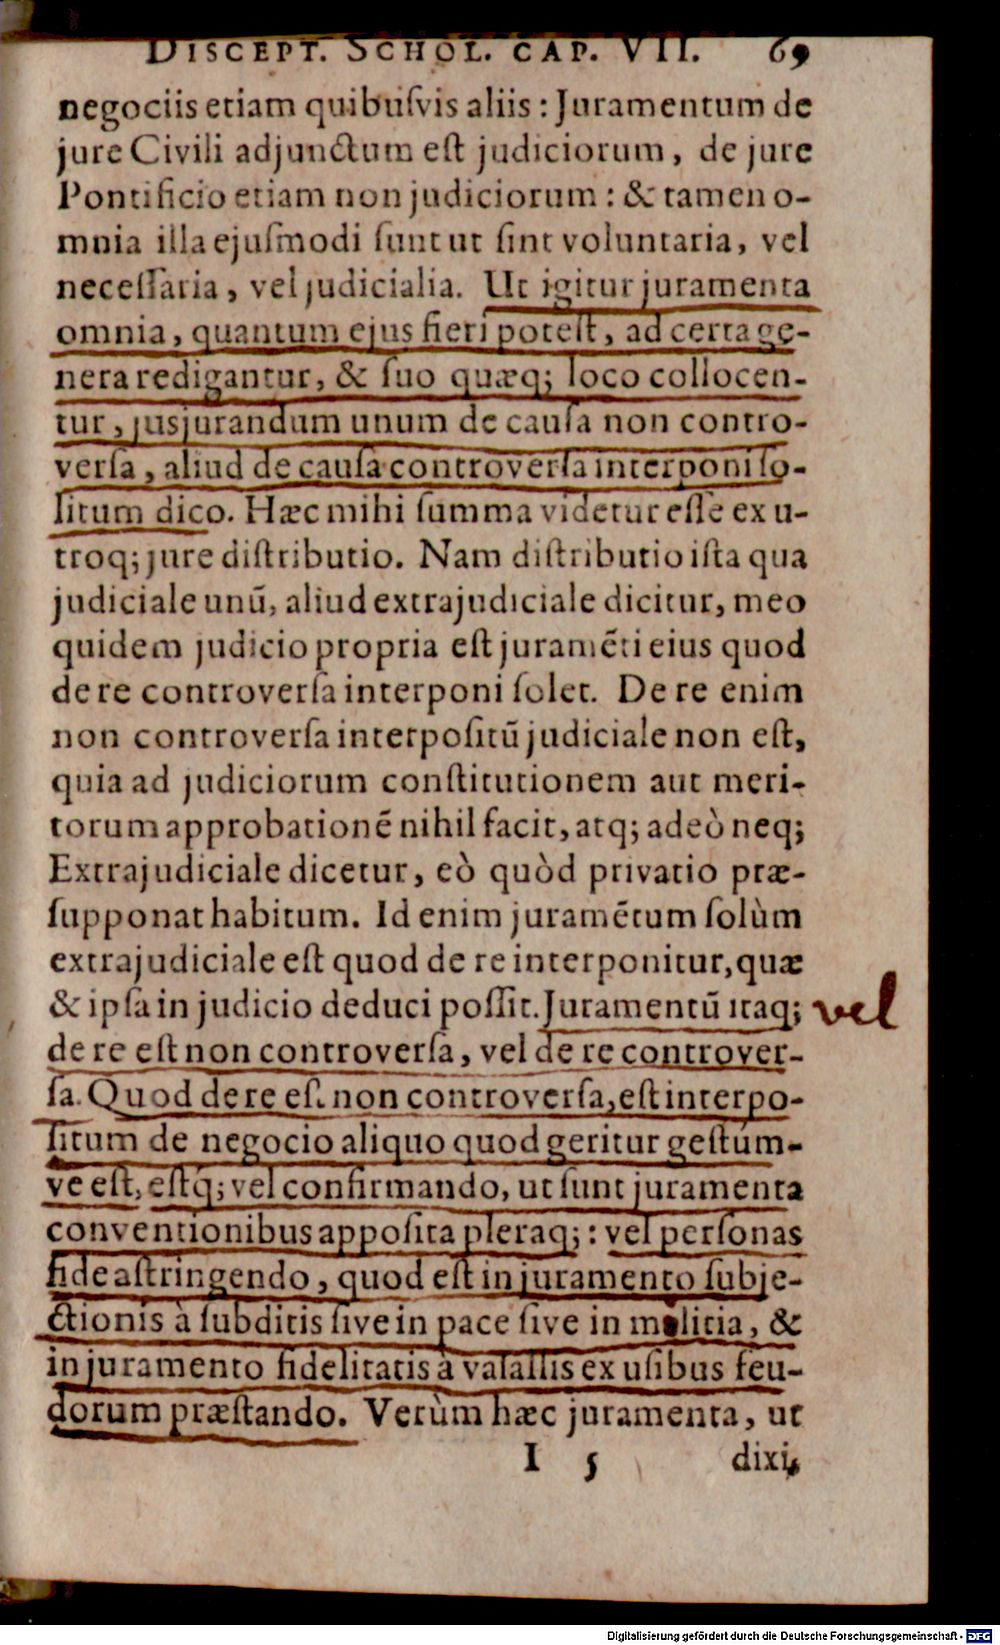 DISCEPT. SCHOL. CAP. VII. 69
negociis etiam quibuſvis aliis : Juramentum de
jure Civili adjunctum eſt judiciorum, de jure
Pontificio etiam non judiciorum : & tamen o-
mnia illa ejuſmodi ſunt ut ſint voluntaria, vel
neceſſaria, vel judicialia. Ut igitur juramenta
omnia, quantum ejus fieri poteſt, ad certa ge-
nera redigantur, & ſuo quæq; loco collocen-
tur, jusjurandum unum de cauſa non contro-
verſa, aliud de cauſa controverſa interponi ſo-
litum dico. Hæc mihi ſumma videtur eſſe ex u-
troq; jure diſtributio. Nam diſtributio iſta qua
judiciale unū, aliud extrajudiciale dicitur, meo
quidem judicio propria eſt juramēti eius quod
de re controverſa interponi ſolet. De re enim
non controverſa interpoſitū judiciale non eſt,
quia ad judiciorum conſtitutionem aut meri-
torum approbationē nihil facit, atq; adeò neq;
Extrajudiciale dicetur, eò quòd privatio præ-
ſupponat habitum. Id enim juramētum ſolùm
extrajudiciale eſt quod de re interponitur, quæ
& ipſa in judicio deduci poſſit. Juramentū itaq; vel
de re eſt non controverſa, vel de re controver-
ſa. Quod de re eſt non controverſa, eſt interpo-
ſitum de negocio aliquo quod geritur geſtúm-
ve eſt, eſtq́; vel confirmando, ut ſunt juramenta
conventionibus appoſita pleraq; : vel perſonas
fide aſtringendo, quod eſt in juramento ſubje-
ctionis à ſubditis ſive in pace ſive in militia, &
in juramento fidelitatis à vaſallis ex uſibus feu-
dorum præſtando. Verùm hæc juramenta, ut
I 5 dixi,
Digitalisierung gefördert durch die Deutsche Forschungsgemeinschaft - DFG